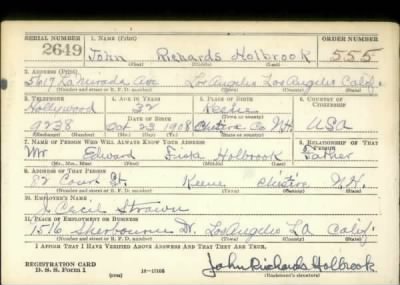 SERIAL NUMBER 1. NAME (Print) ORDER NUMBER
2649 John Richards Holbrook 555
(First) (Middle) (Last)
2. ADDRESS (Print)
5617 La Mirada Ave Los Angeles Los Angeles Calif.
(Number and street or R. F. D. number) (Town) (County) (State)
3. TELEPHONE 4. AGE IN YEARS 5. PLACE OF BIRTH 6. COUNTRY OF CITIZENSHIP
Hollywood 32 Keene
DATE OF BIRTH
9238 Oct 23 1908 Co N.H. USA
(Exchange) (Number) (Mo.) (Day) (Yr.) (Town or county) (State or country)
7. NAME OF PERSON WHO WILL ALWAYS KNOW YOUR ADDRESS 8. RELATIONSHIP OF THAT PERSON
Mr Edward Holbrook Father
(Mr., Mrs., Miss) (First) (Middle) (Last)
9. ADDRESS OF THAT PERSON
82 Court St. Keene N.H.
(Number and street or R. F. D. number) (Town) (County) (State)
10. EMPLOYER'S NAME
Cecil Strawn
11. PLACE OF EMPLOYMENT OR BUSINESS
1516 Sherbourne Dr. Los Angeles LA Calif.
(Number and street or R. F. D. number) (Town) (County) (State)
I AFFIRM THAT I HAVE VERIFIED ABOVE ANSWERS AND THAT THEY ARE TRUE.
REGISTRATION CARD
D. S. S. Form 1 (over) John Richards Holbrook
(Registrant's signature)